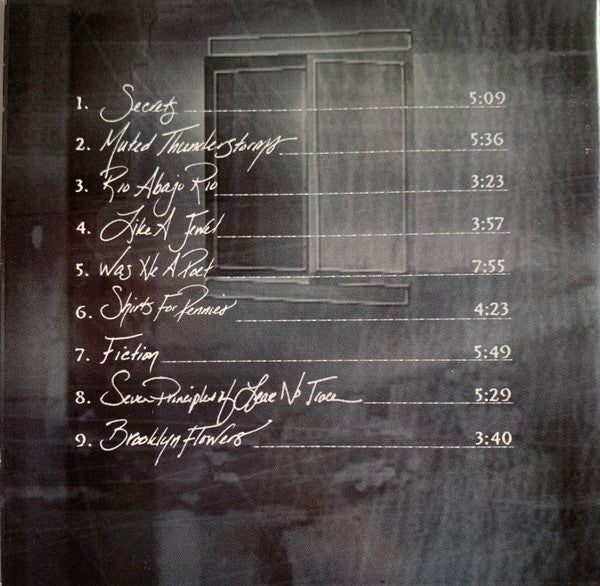 1. Secrets 5:09
2. Muted Thunderstorms 5:36
3. Rio Abajo Rio 3:23
4. Like A Jewel 3:57
5. Was He A Poet 7:55
6. Shirts For Pennies 4:23
7. Fiction 5:49
8. Seven Principles of Leave No Trace 5:29
9. Brooklyn Flowers 3:40